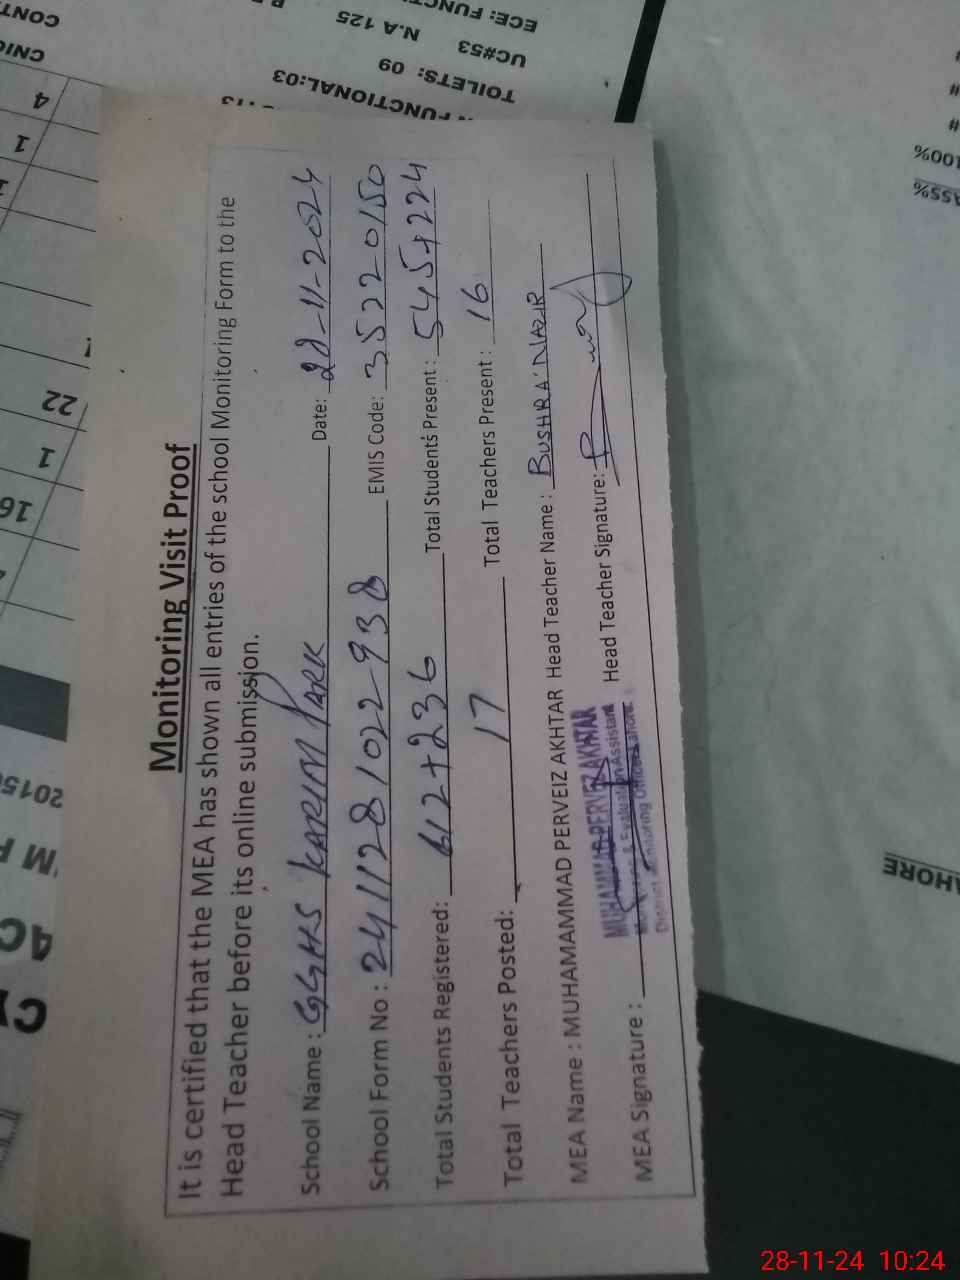 Monitoring Visit Proof
It is certified that the MEA has shown all entries of the school Monitoring Form to the
Head Teacher before its online submission.
School Name : GGHS KARIM PARK Date: 28-11-2024
School Form No : 241128 1022 938 EMIS Code: 35220150
Total Students Registered: 612+236 Total Students Present : 545+224
Total Teachers Posted: 17 Total Teachers Present : 16
MEA Name : MUHAMAMMAD PERVEIZ AKHTAR Head Teacher Name : BUSHRA NAZIR
MEA Signature : Head Teacher Signature:
MUHAMMAD PERVEIZ AKHTAR
Monitoring & Evaluation Assistant
District Monitoring Officer Lahore.
ECE: FUNCTI
UC#53 N.A 125
TOILETS: 09
FUNCTIONAL:03
CONT
CNIC
4
1
22
1
16
2015
M P
AC
100%
ASS%
AHORE
28-11-24 10:24